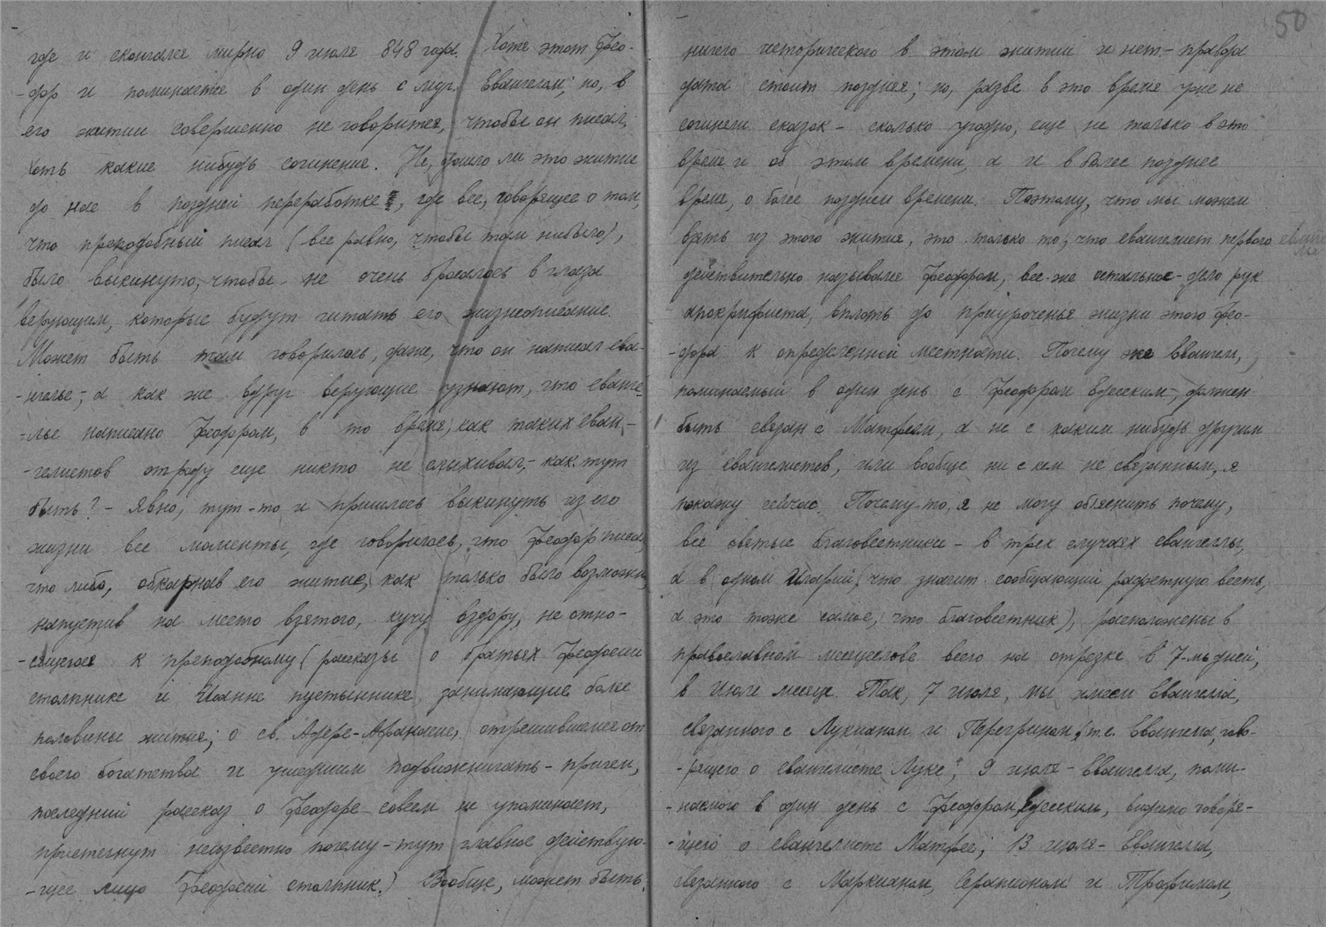 где и скончался мирно 9 июля 848 года. Хотя этот Фео-
-дор и поминается в один день с муч. Евангелом; но, в
его житии совершенно не говорится, чтобы он писал,
хоть какие нибудь сочинения. Не дошло ли это житие
до нас в поздней переработке, где все, говорящее о том,
что преподобный писал (все равно, чтобы там ни было),
было выкинуто, чтобы не очень бросалось в глаза
верующим, которые будут читать его жизнеописание.
Может быть там говорилось, даже, что он написал еван-
-нгелье; а как же вдруг верующие узнают, что еванге-
-лье написано Феодором, в то время, как таких еван-
-гелистов отроду еще никто не слыхивал, - как тут
быть? - Явно, тут-то и пришлось выкинуть из его
жизни все моменты, где говорилось, что Феодор писал
что либо, обкарнав его житие, как только было возможно,
напустив на место взятого, кучу вздору, не отно-
-сящегося к преподобному (рассказы о братьях Феодосии
столпнике и Иоанне пустыннике, занимающие более
половины жития; о св. Адере-Афанасие, отрешившемся от
своего богатства и ушедшим подвижничать - причем,
последний рассказ о Феодоре совсем не упоминает,
пристегнут неизвестно почему - тут главное действую-
-щее лицо Феодосий столпник.) Вообще, может быть,
50
ничего исторического в этом житии и нет - правда
дата стоит поздняя; но, разве в это время уже не
сочиняли сказок - сколько угодно, еще не только в это
время и об этом времени, а и в более позднее
время, о более позднем времени. Поэтому, что мы можем
брать из этого жития, это только то, что евангелист первого
действительно назывался Феодором, все-же остальное - дело рук
апокрифиста, вплоть до приуроченья жизни этого Фео-
-дора к определенной местности. Почему же Евангел,
поминаемый в один день с Феодором Едесским, должен
быть связан с Матфеем, а не с каким нибудь другим
из евангелистов, или вообще ни с кем не связанным, я
покажу сейчас. Почему-то, я не могу объяснить почему,
все святые благовестники - в трех случаях евангелы,
а в одном Иларий, что значит сообщающий радостную весть,
а это тоже самое, что благовестник), расположены в
православном месяцеслове всего на отрезке в 7-мь дней,
в Июле месяце. Так, 7 июля, мы имеем Евангела,
связанного с Лукианом и Перегрином, т.е. Евангела, гово-
-рящего о евангелисте Луке; 9 июля - Евангела, поми-
-наемого в один день с Феодором Едесским, видимо говоря-
-щего о евангелисте Матфее; 13 июля - Евангела,
связанного с Маркианом, Серапионом и Трофимом,